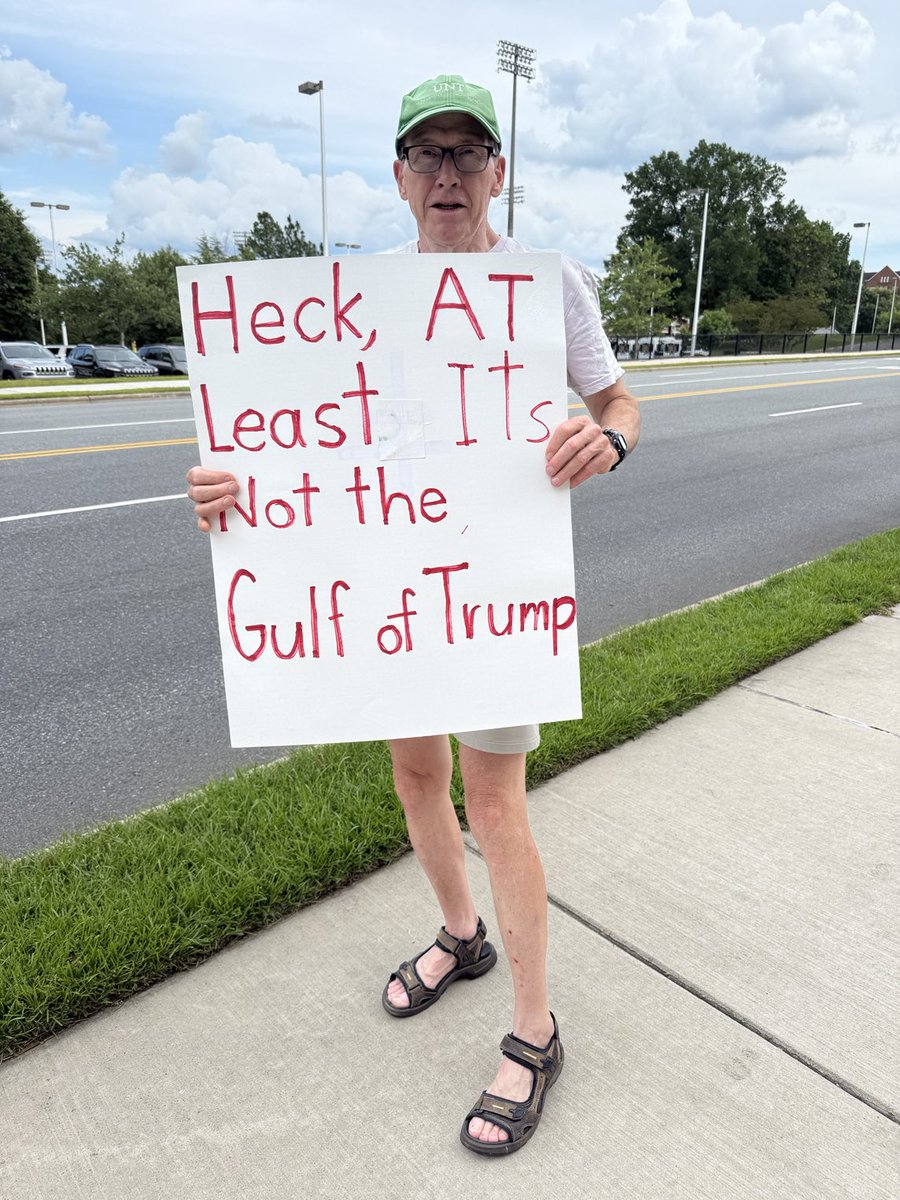 UNT
Heck, AT
Least Its
Not the
Gulf of Trump